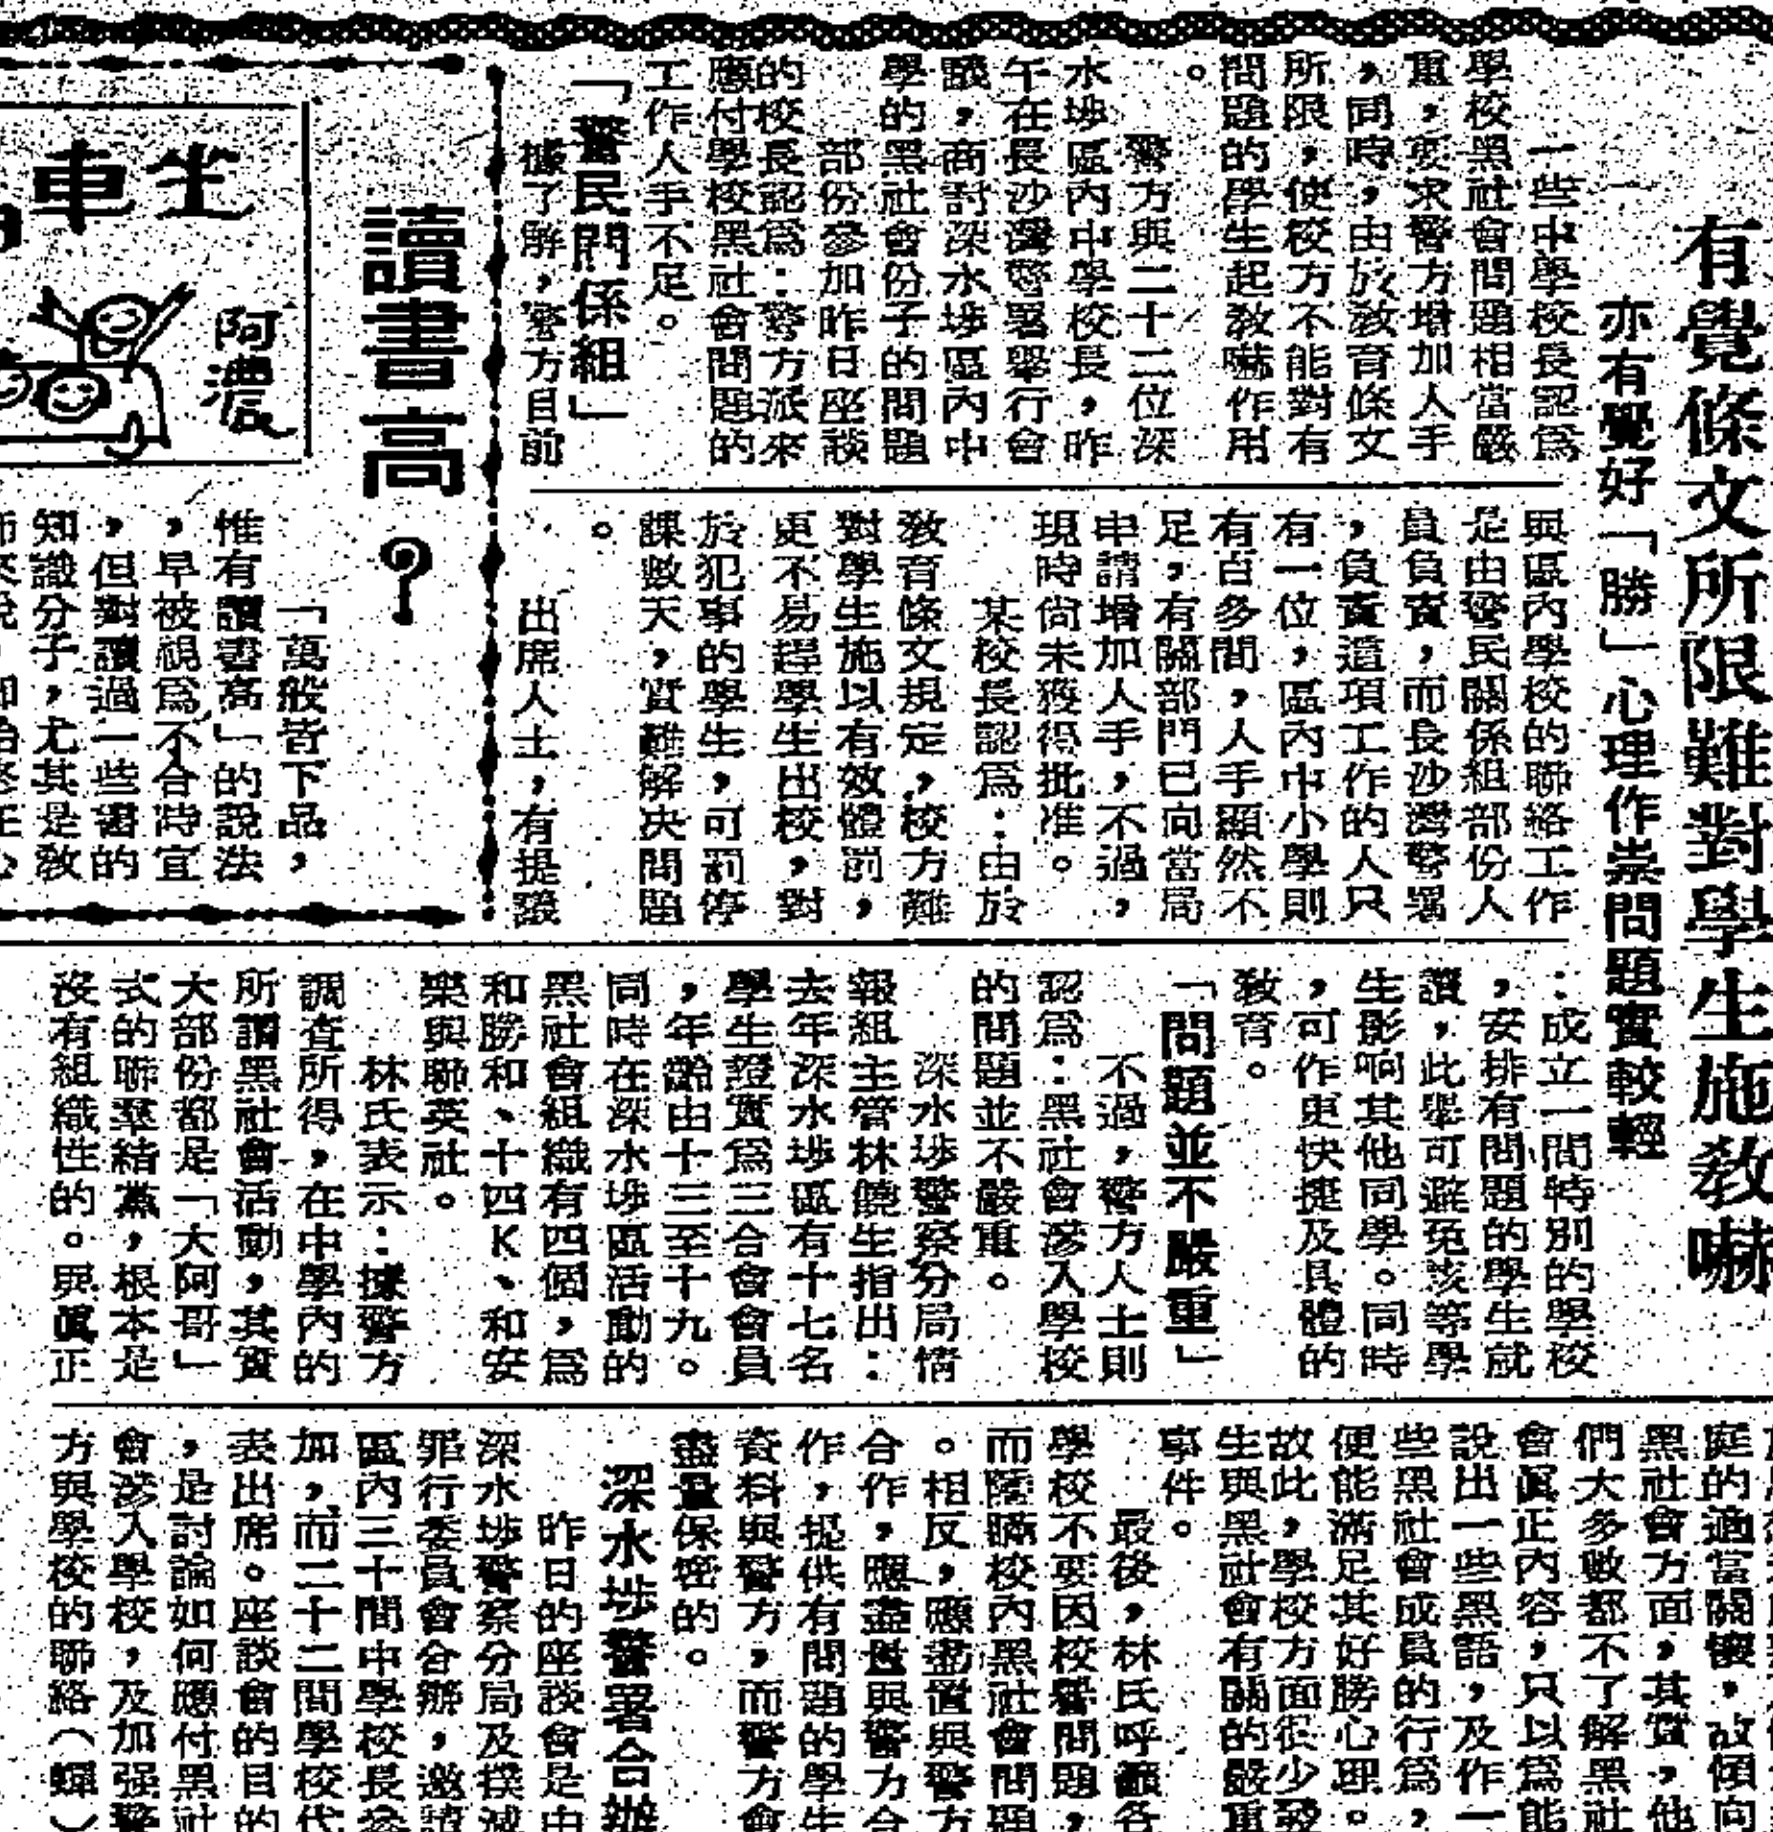 有覺條文所限難對學生施敎嚇
亦有覺好「勝」心理作祟問題實較輕
一些中學校長認爲
學校黑社會問題相當嚴
重，要求警方增加人手
，同時，由於敎育條文
所限，使校方不能對有
問題的學生起敎嚇作用
。
警方與二十二位深
水埗區內中學校長，昨
午在長沙灣警署舉行會
議，商討深水埗區內中
學的黑社會份子的問題
部份參加昨日座談
的校長認爲：警方派來
應付學校黑社會問題的
工作人手不足。
「警民關係組」
據了解，警方目前
與區內學校的聯絡工作
是由警民關係組部份人
員負責，而長沙灣警署
，負責這項工作的人只
有一位，區內中小學則
有百多間，人手顯然不
足，有關部門已向當局
申請增加人手，不過，
現時尚未獲得批准。
某校長認爲：由於
敎育條文規定，校方難
對學生施以有效體罰，
更不易趕學生出校，對
於犯事的學生，可罰停
課數天，實難解決問題
。
出席人士，有提議
：成立一間特別的學校
，安排有問題的學生就
讀，此舉可避免該等學
生影响其他同學。同時
，可作更快捷及具體的
敎育。
「問題並不嚴重」
不過，警方人士則
認爲：黑社會滲入學校
的問題並不嚴重。
深水埗警察分局情
報組主管林饒生指出：
去年深水埗區有十七名
學生證實爲三合會會員
，年齡由十三至十九。
同時在深水埗區活動的
黑社會組織有四個，爲
和勝和、十四K、和安
樂與聯英社。
林氏表示：據警方
調查所得，在中學內的
所謂黑社會活動，其實
大部份都是「大阿哥」
式的聯羣結黨，根本是
沒有組織性的。與眞正
庭的適當關懷，故傾向
黑社會方面，其實，他
們大多數都不了解黑社
會眞正內容，只以爲能
說出一些黑語，及作一
些黑社會成員的行爲，
便能滿足其好勝心理。
故此，學校方面很少發
生與黑社會有關的嚴重
事件。
最後，林氏呼籲各
學校不要因校譽問題，
而隱瞞校內黑社會問題
。相反，應盡量與警方
合作，應盡量與警方合
作，提供有問題的學生
資料與警方，而警方會
盡量保密的。
深水埗警署合辦
昨日的座談會是由
深水埗警察分局及撲滅
罪行委員會合辦，邀請
區內三十間中學校長參
加，而二十二間學校代
表出席。座談會的目的
，是討論如何應付黑社
會滲入學校，及加强警
方與學校的聯絡（蟬）
讀書高？
坐車
阿濃
「萬般皆下品，
惟有讀書高」的說法
，早被視爲不合時宜
，但對讀過一些書的
知識分子，尤其是敎